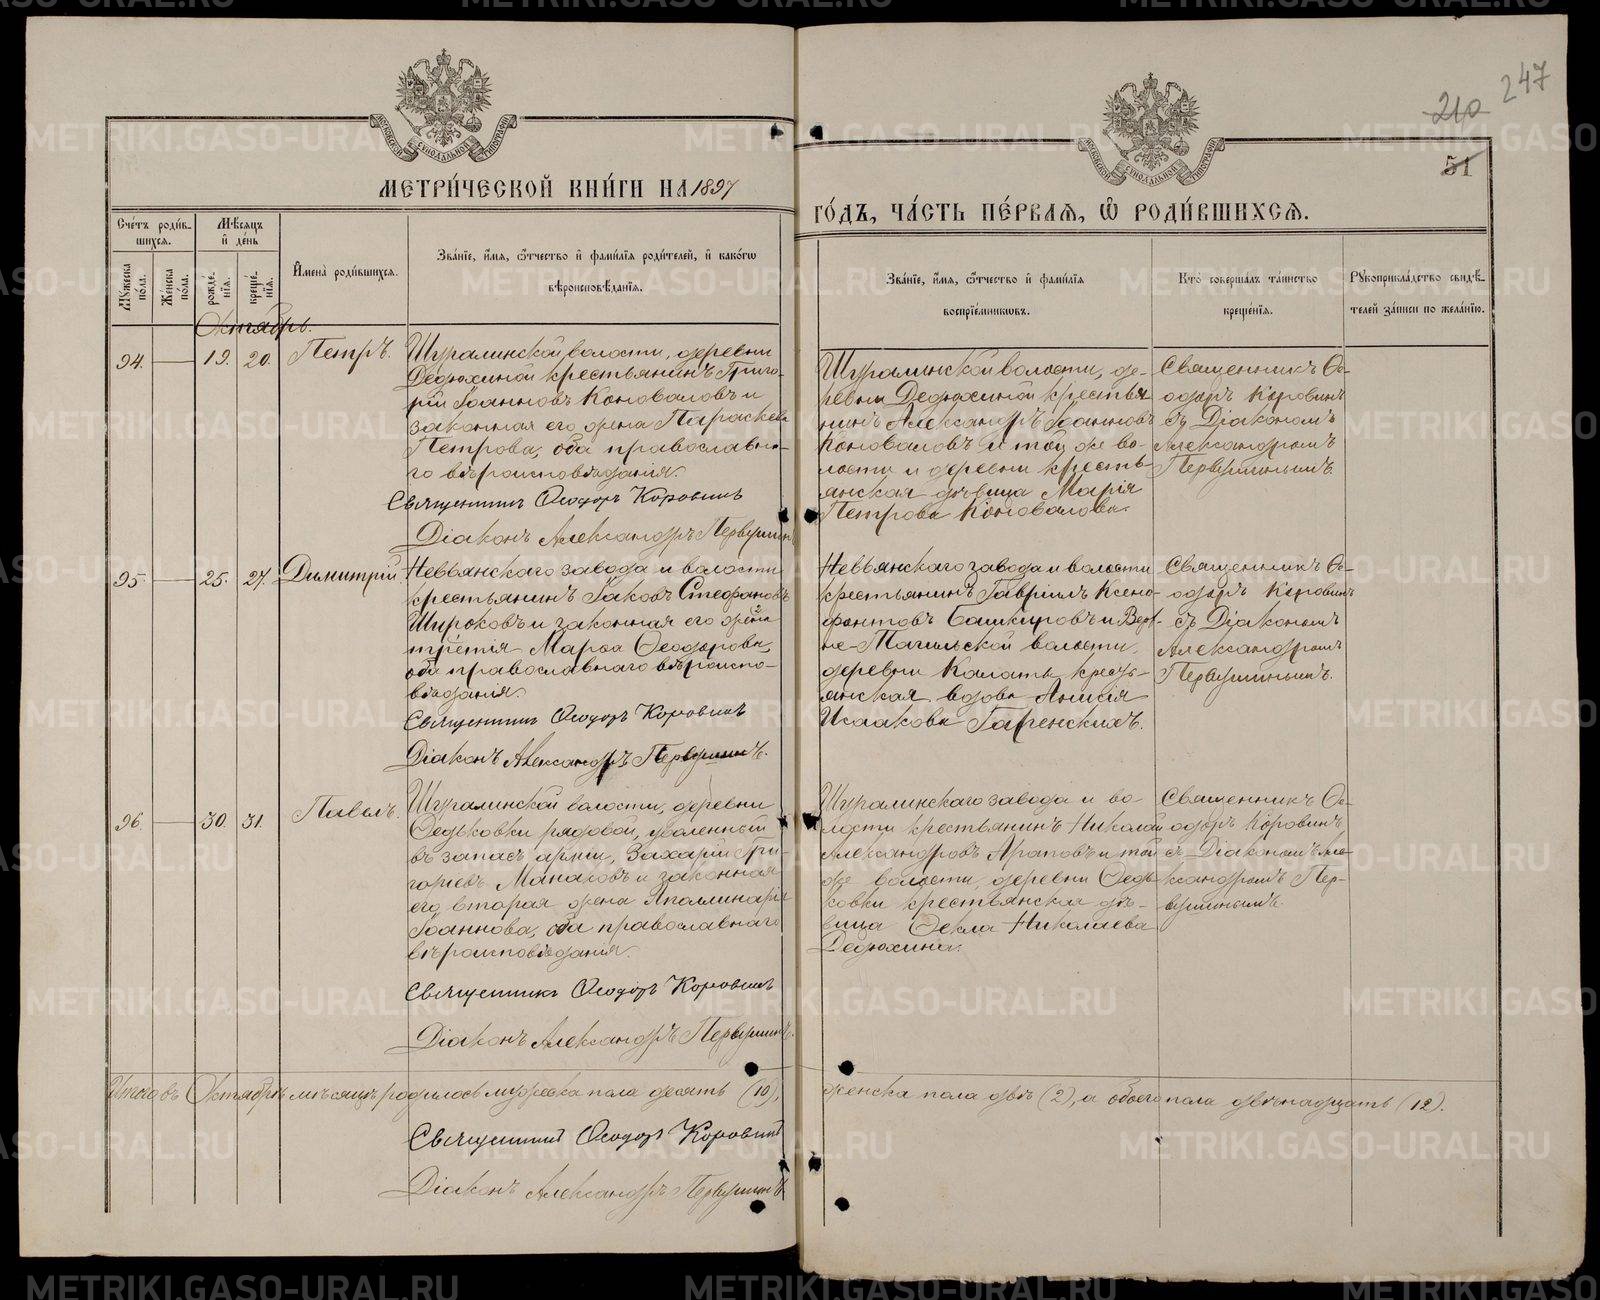 247
210
51
МОСКОВСКОЙ СѴНОДАЛЬНОЙ ТИПОГРАФІИ
МОСКОВСКОЙ СѴНОДАЛЬНОЙ ТИПОГРАФІИ
МЕТРИ́ЧЕСКОЙ КНИ́ГИ НА 1897
ГО́ДЪ, ЧА́СТЬ ПЕ́РВАЯ, Ѡ РОДИ́ВШИХСЯ.
Сче́тъ роди́в-
шихся.
Мѣ́сяцъ
и де́нь
Му́жеска
по́ла.
Же́нска
по́ла.
рожде́-
нія.
креще́-
нія.
Имена̀ роди́вшихся.
Зва́ніе, и́мя, ѻ́тчество и фами́лія роди́телей, и како́гѡ
вѣроисповѣ́данія.
Зва́ніе, и́мя, ѻ́тчество и фами́лія
воспріе́мниковъ.
Кто̀ соверша́лъ та́инство
креще́нія.
Рукоприкла́дство свидѣ́-
телей за́писи по жела́нію.
Октябрь.
94.
19.
20.
Петръ.
Шуралинской волости, деревни
Дедюхиной крестьянинъ Григо-
рій Іоанновъ Коноваловъ и
законная его жена Параскева
Петрова, оба православна-
го вѣроисповѣданія.
Священникъ Ѳеодоръ Коровинъ
Діаконъ Александръ Первушинъ
Шуралинской волости, де-
ревни Дедюхиной крестья
нинъ Александръ Іоанновъ
Коноваловъ и той же во-
лости и деревни кресть-
янская дѣвица Марія
Петрова Коновалова.
Священникъ Ѳе-
одоръ Коровинъ
съ Діакономъ
Александромъ
Первушинымъ.
95.
25.
27.
Димитрій.
Невьянскаго завода и волости
крестьянинъ Іаковъ Стефановъ
Широковъ и законная его жена
третія Марѳа Ѳеодорова,
оба православнаго вѣроиспо-
вѣданія.
Священникъ Ѳеодоръ Коровинъ
Діаконъ Александръ Первушинъ.
Невьянскаго завода и волости
крестьянинъ Гавріилъ Ксено-
фонтовъ Башкировъ и Верх-
не-Тагильской волости,
деревни Калаты кресть-
янская вдова Анисія
Исаакова Гаренскихъ.
Священникъ Ѳе-
одоръ Коровинъ
съ Діакономъ
Александромъ
Первушинымъ.
96.
30.
31.
Павелъ.
Шуралинской волости, деревни
Ѳедьковки рядовой, уволенный
въ запасъ арміи, Захарій Гри-
горьевъ Манаковъ и законная
его вторая жена Аполинарія
Іоаннова, оба православнаго
вѣроисповѣданія.
Священникъ Ѳеодоръ Коровинъ
Діаконъ Александръ Первушинъ.
Шуралинскаго завода и во-
лости крестьянинъ Николай
Александровъ Араповъ и той
же волости, деревни Ѳедь-
ковки крестьянская дѣ-
вица Ѳекла Николаева
Дедюхина.
Священникъ Ѳе-
одоръ Коровинъ
съ Діакономъ Але-
ксандромъ Пер-
вушинымъ.
Итого въ Октябрѣ мѣсяцѣ родилось мужеска пола десять (10),
женска пола двѣ (2), а обоего пола двѣнадцать (12).
Священникъ Ѳеодоръ Коровинъ
Діаконъ Александръ Первушинъ
METRIKI.GASO-URAL.RU